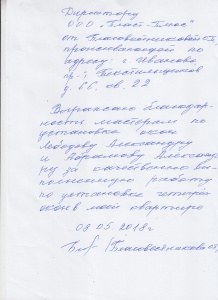 Директору
ООО „Пласт-Плюс"
от
проживающей по
адресу: г. Иваново
пр. Текстильщиков
д. 66, кв. 22
Выражаю благодар-
ность мастерам по
установке окон
Лебедеву Александру
и Абрамову Алексан-
ру за качественно вы-
полненную работу
по установке четырёх
окон в моей квартире
08.05.2018г